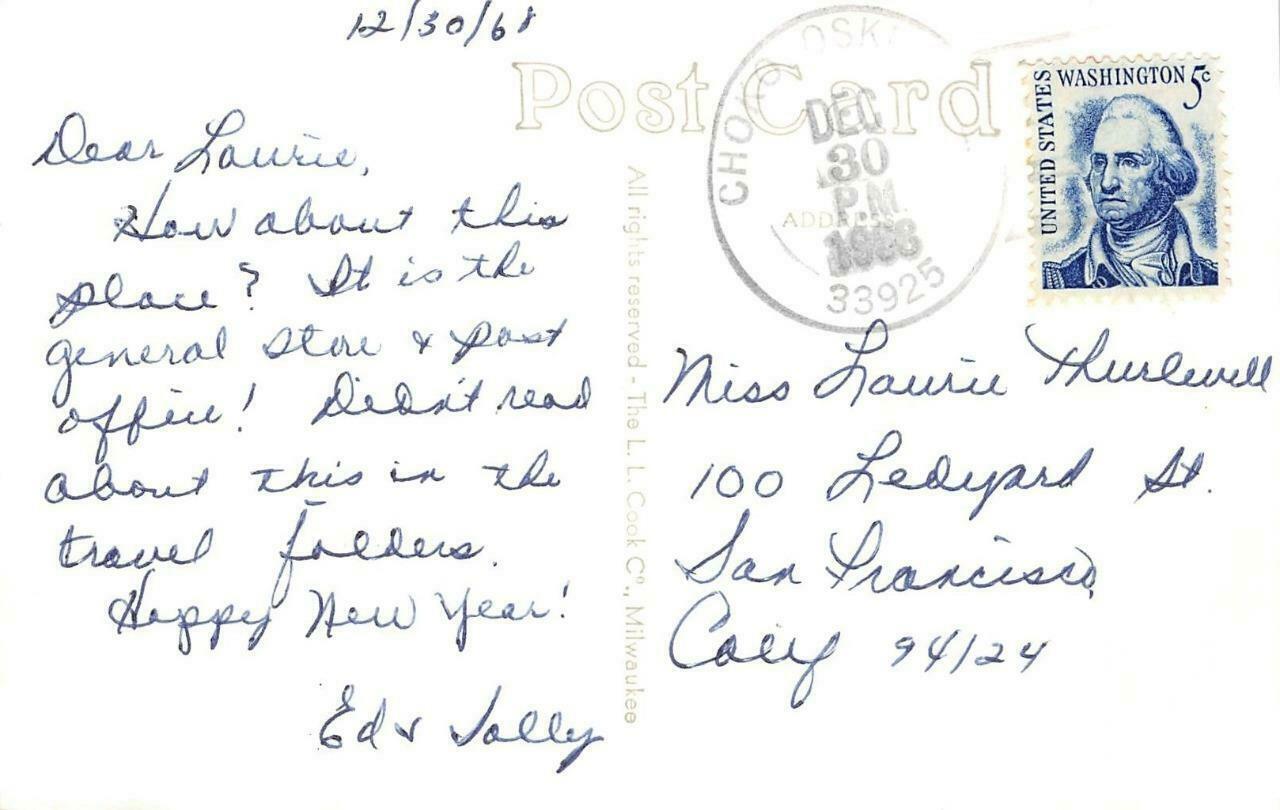 12/30/68
Post Card
Dear Laurie,
How about this
place? It is the
general store & post
office! Didn't read
about this in the
travel folders.
Happy New Year!
Ed & Sally
All rights reserved - The L. L. Cook Co., Milwaukee
CHOKOLOSKEE
DEC
30
P.M.
33925
ADDRESS
UNITED STATES
WASHINGTON 5c
Miss Laurie
100 Ledyard St.
San Francisco,
Calif 94124